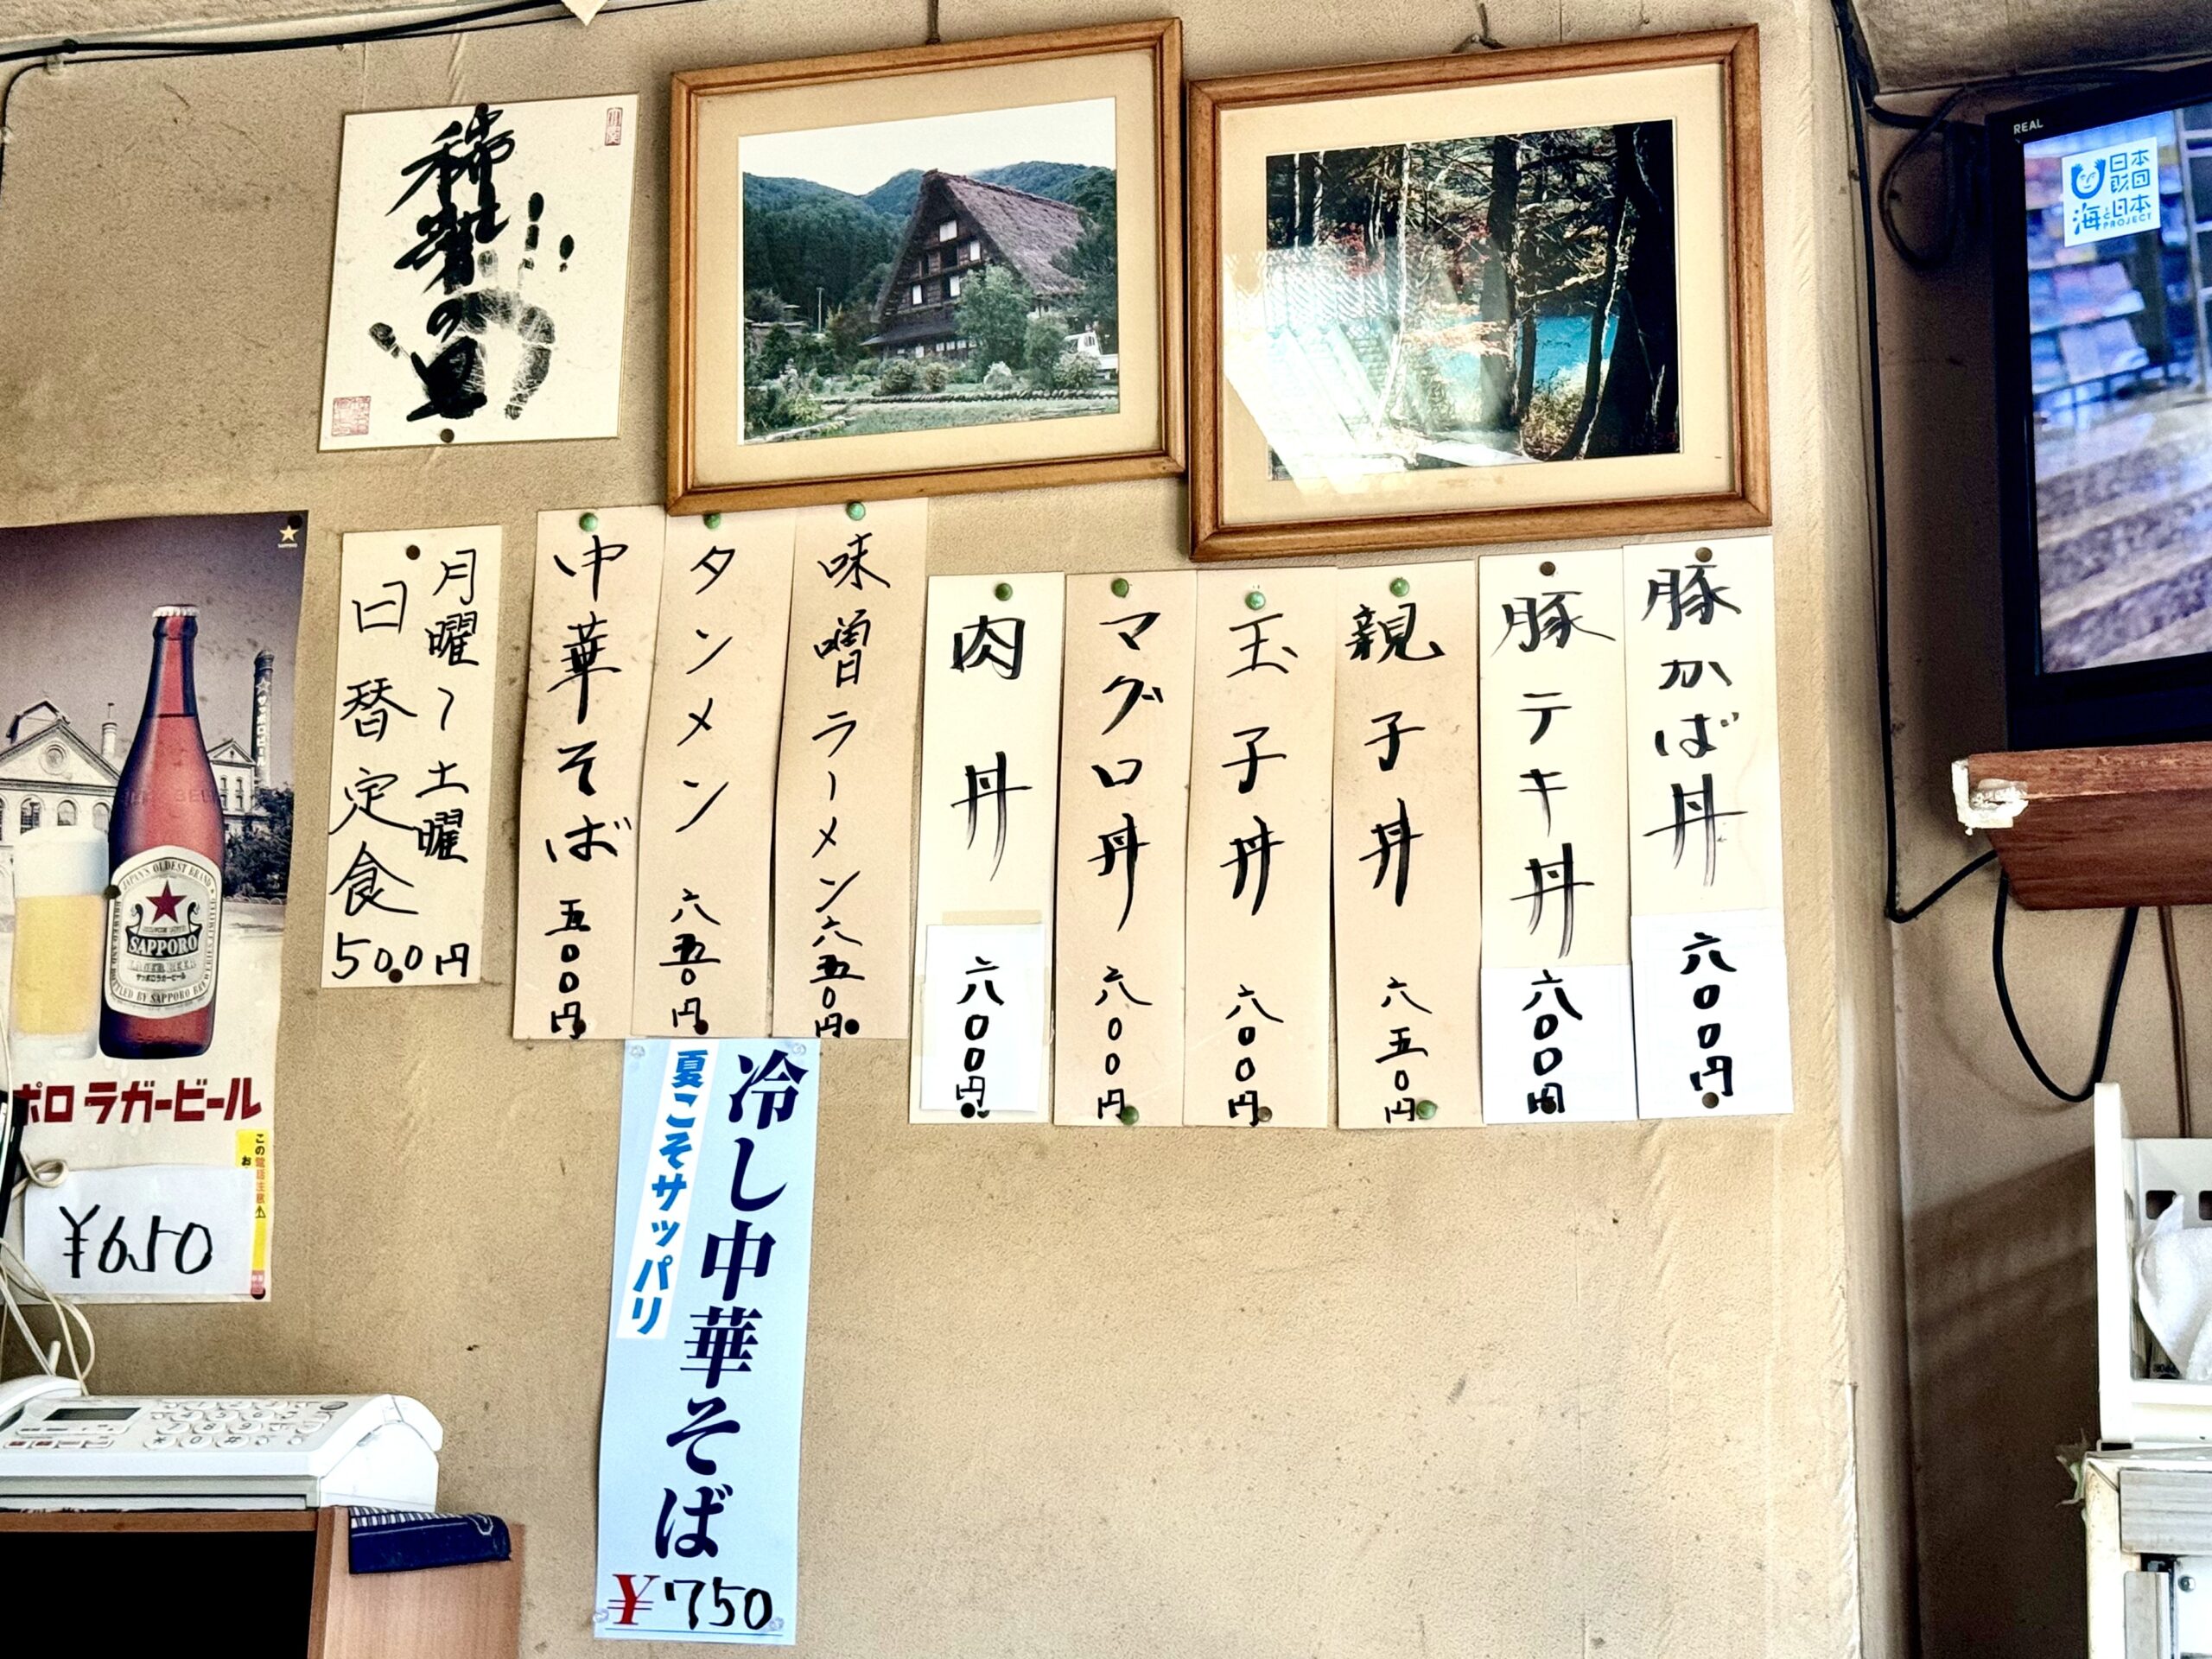 稀勢の里
REAL
日本
財団
海と日本
PROJECT
豚かば丼
六〇〇円
豚テキ丼
六〇〇円
親子丼
六五〇円
玉子丼
六〇〇円
マグロ丼
六〇〇円
肉丼
六〇〇円
味噌ラーメン
六五〇円
タンメン
六五〇円
中華そば
五〇〇円
月曜〜土曜
日替定食
500円
JAPAN'S OLDEST BRAND
SAPPORO
LAGER BEER
サッポロラガービール
ポロ ラガービール
¥650
この電話注意
冷し中華そば
夏こそサッパリ
¥750